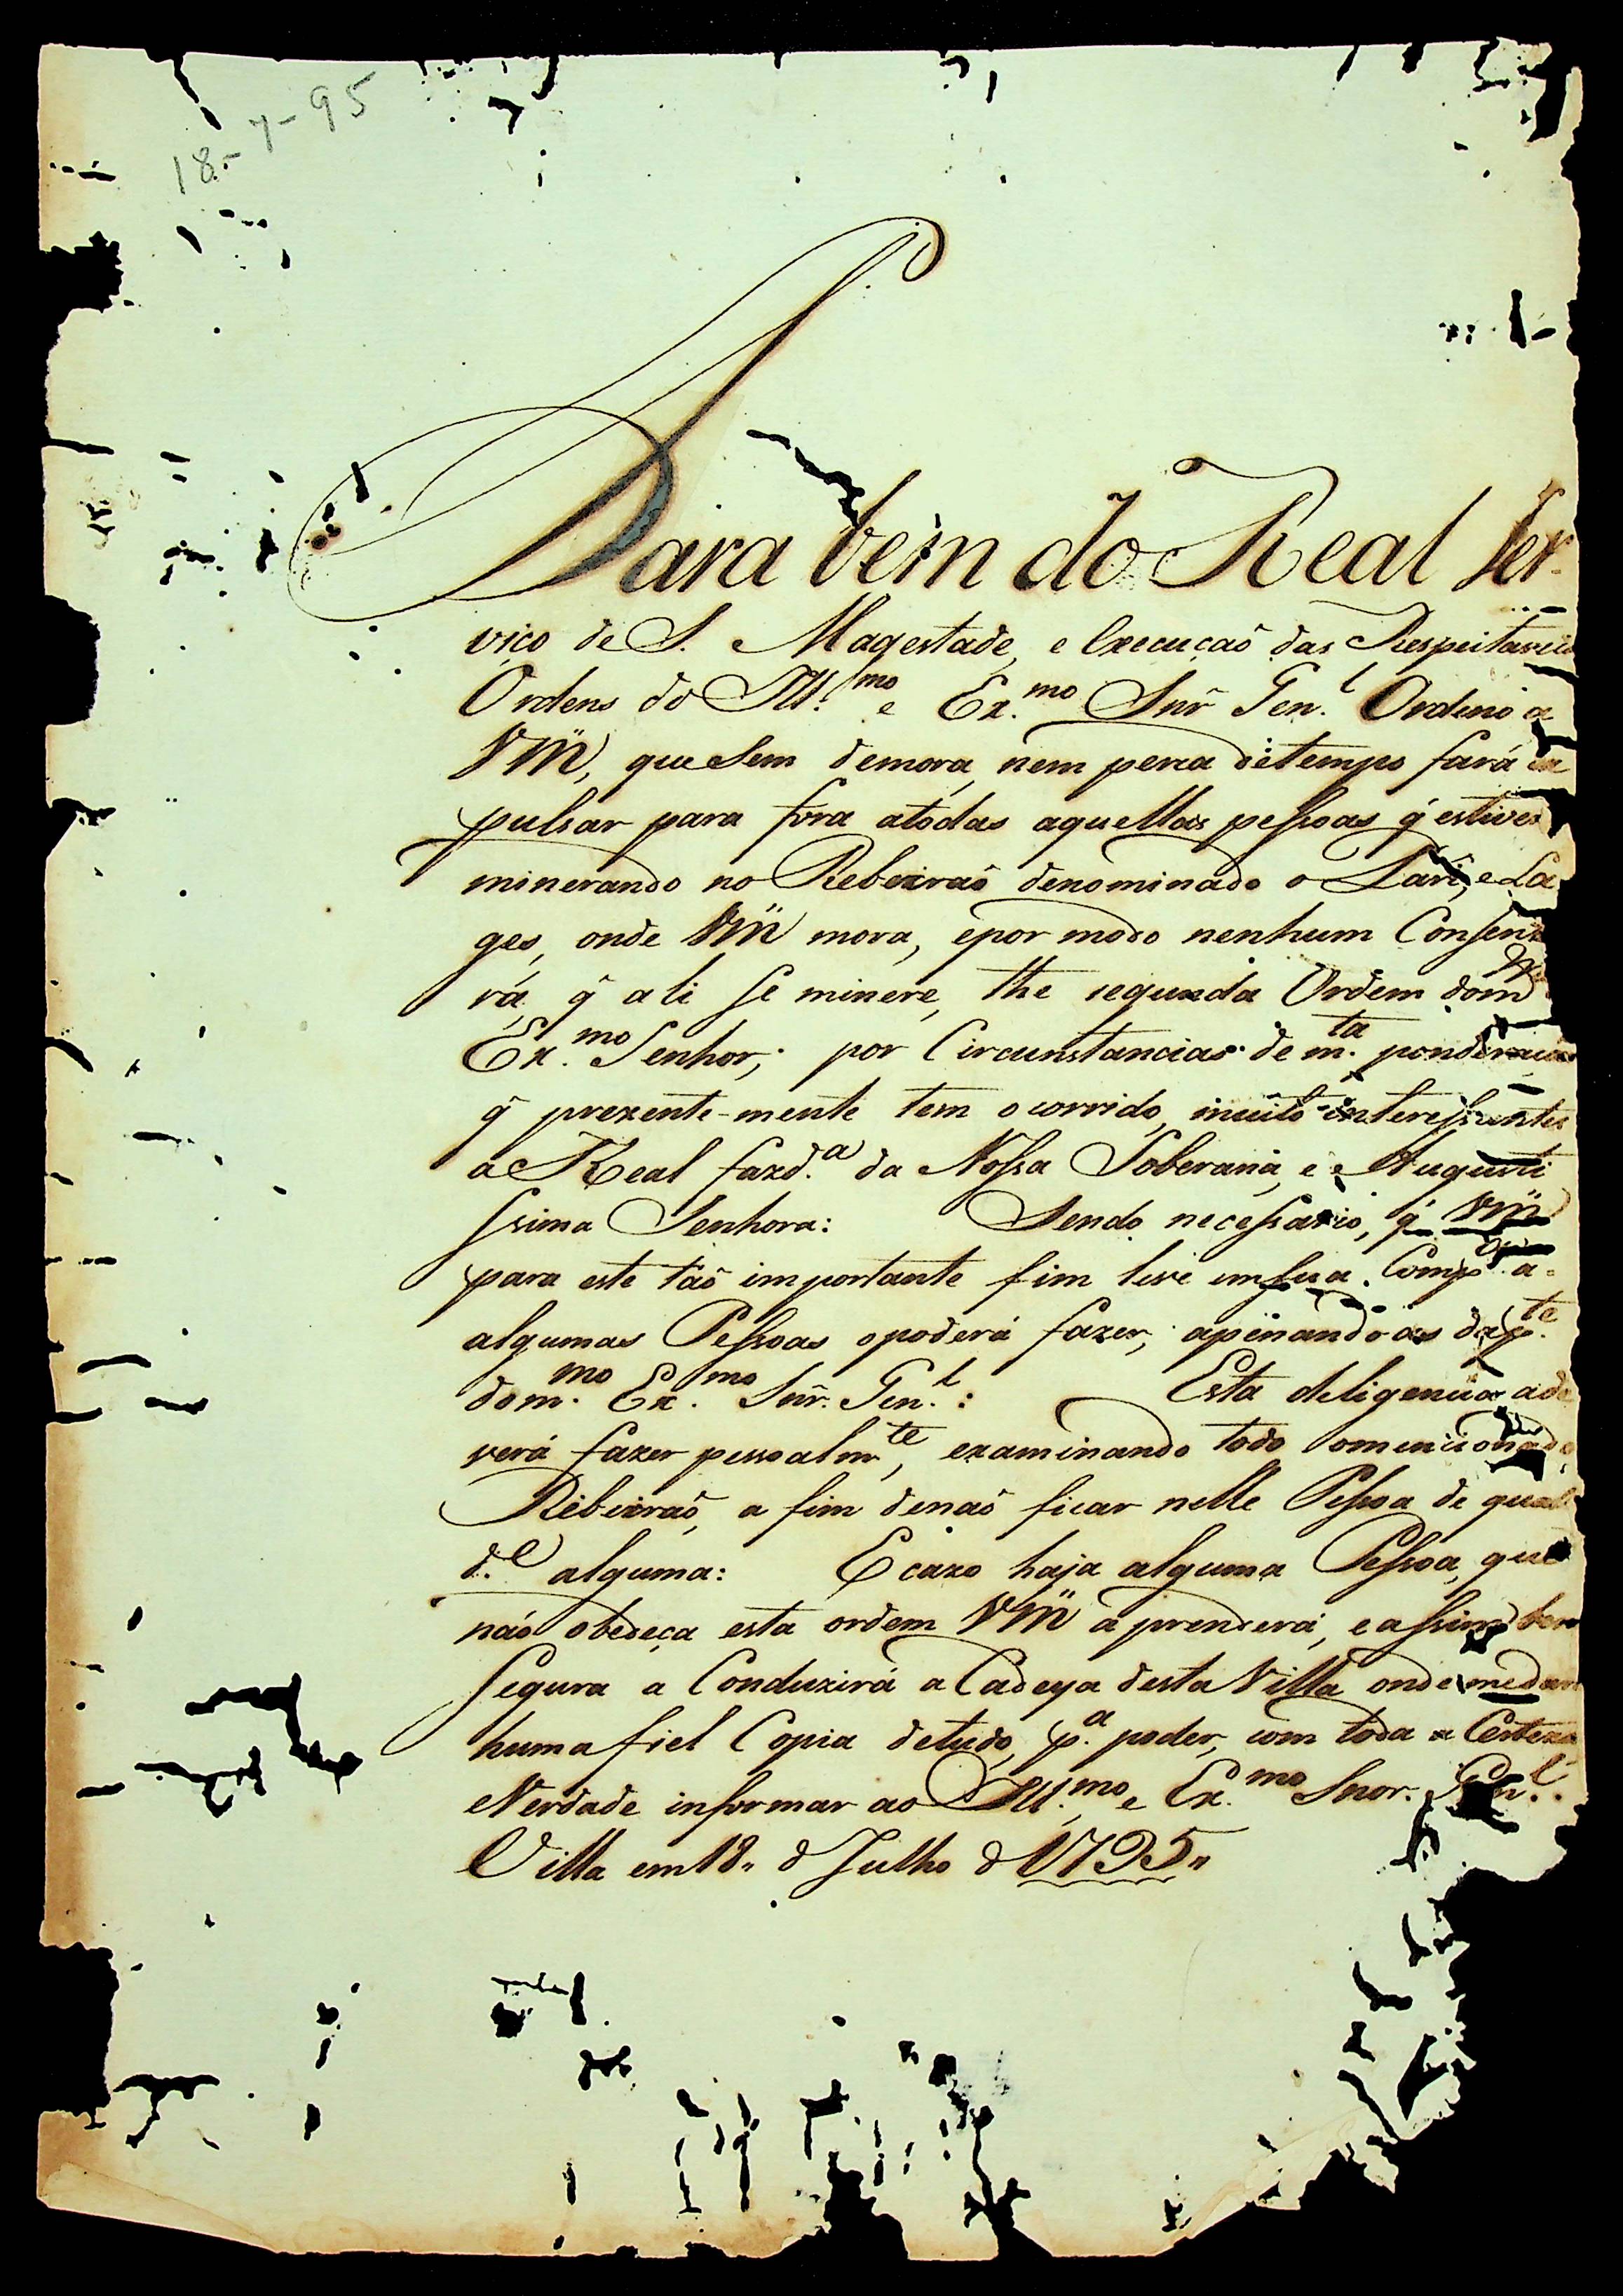 18-7-95
Para bem do Real Ser-
viço de S. Magestade, e execução das Respeitaveis
Ordens do Ill.mo e Ex.mo Snr Gen.l Ordeno a
VM, que sem demora, nem perca detempo fará
pulsar para fora atodas aquellas pessoas q̃ estiver
minerando no Rebeirão denominado o e La
ges, onde VM mora, epor modo nenhum Consenti
rá, q̃ ali se minere, the segunda Ordem dom
Ex.mo Senhor; por Circunstancias de m.ta ponderação
q̃ prezente-mente tem ocorrido, muito interessantes
a Real fazd.a da Nossa Soberana, e Augusti
ssima Senhora: Sendo necessario, q̃ VM
para este tão importante fim leve emsua Comp.a
algumas Pessoas opoderá fazer, apenando as da p.te
dom.mo Ex.mo Snr. Gen.l: Esta deligencia a de
verá fazer pessoalm.te, examinando todo omencionado
Rebeirão, a fim denão ficar nelle Pessoa de quali
d.e alguma: E cazo haja alguma Pessoa, que
não obedeça esta ordem VM a prenderá, eassim bem
segura a Conduzirá a Cadeya desta Villa onde medará
huma fiel Copia detudo, p.a poder, com toda a Certeza
eVerdade informar ao Ill.mo e Ex.mo Snor. Gen.l.
Villa em 18 d Julho d 1795